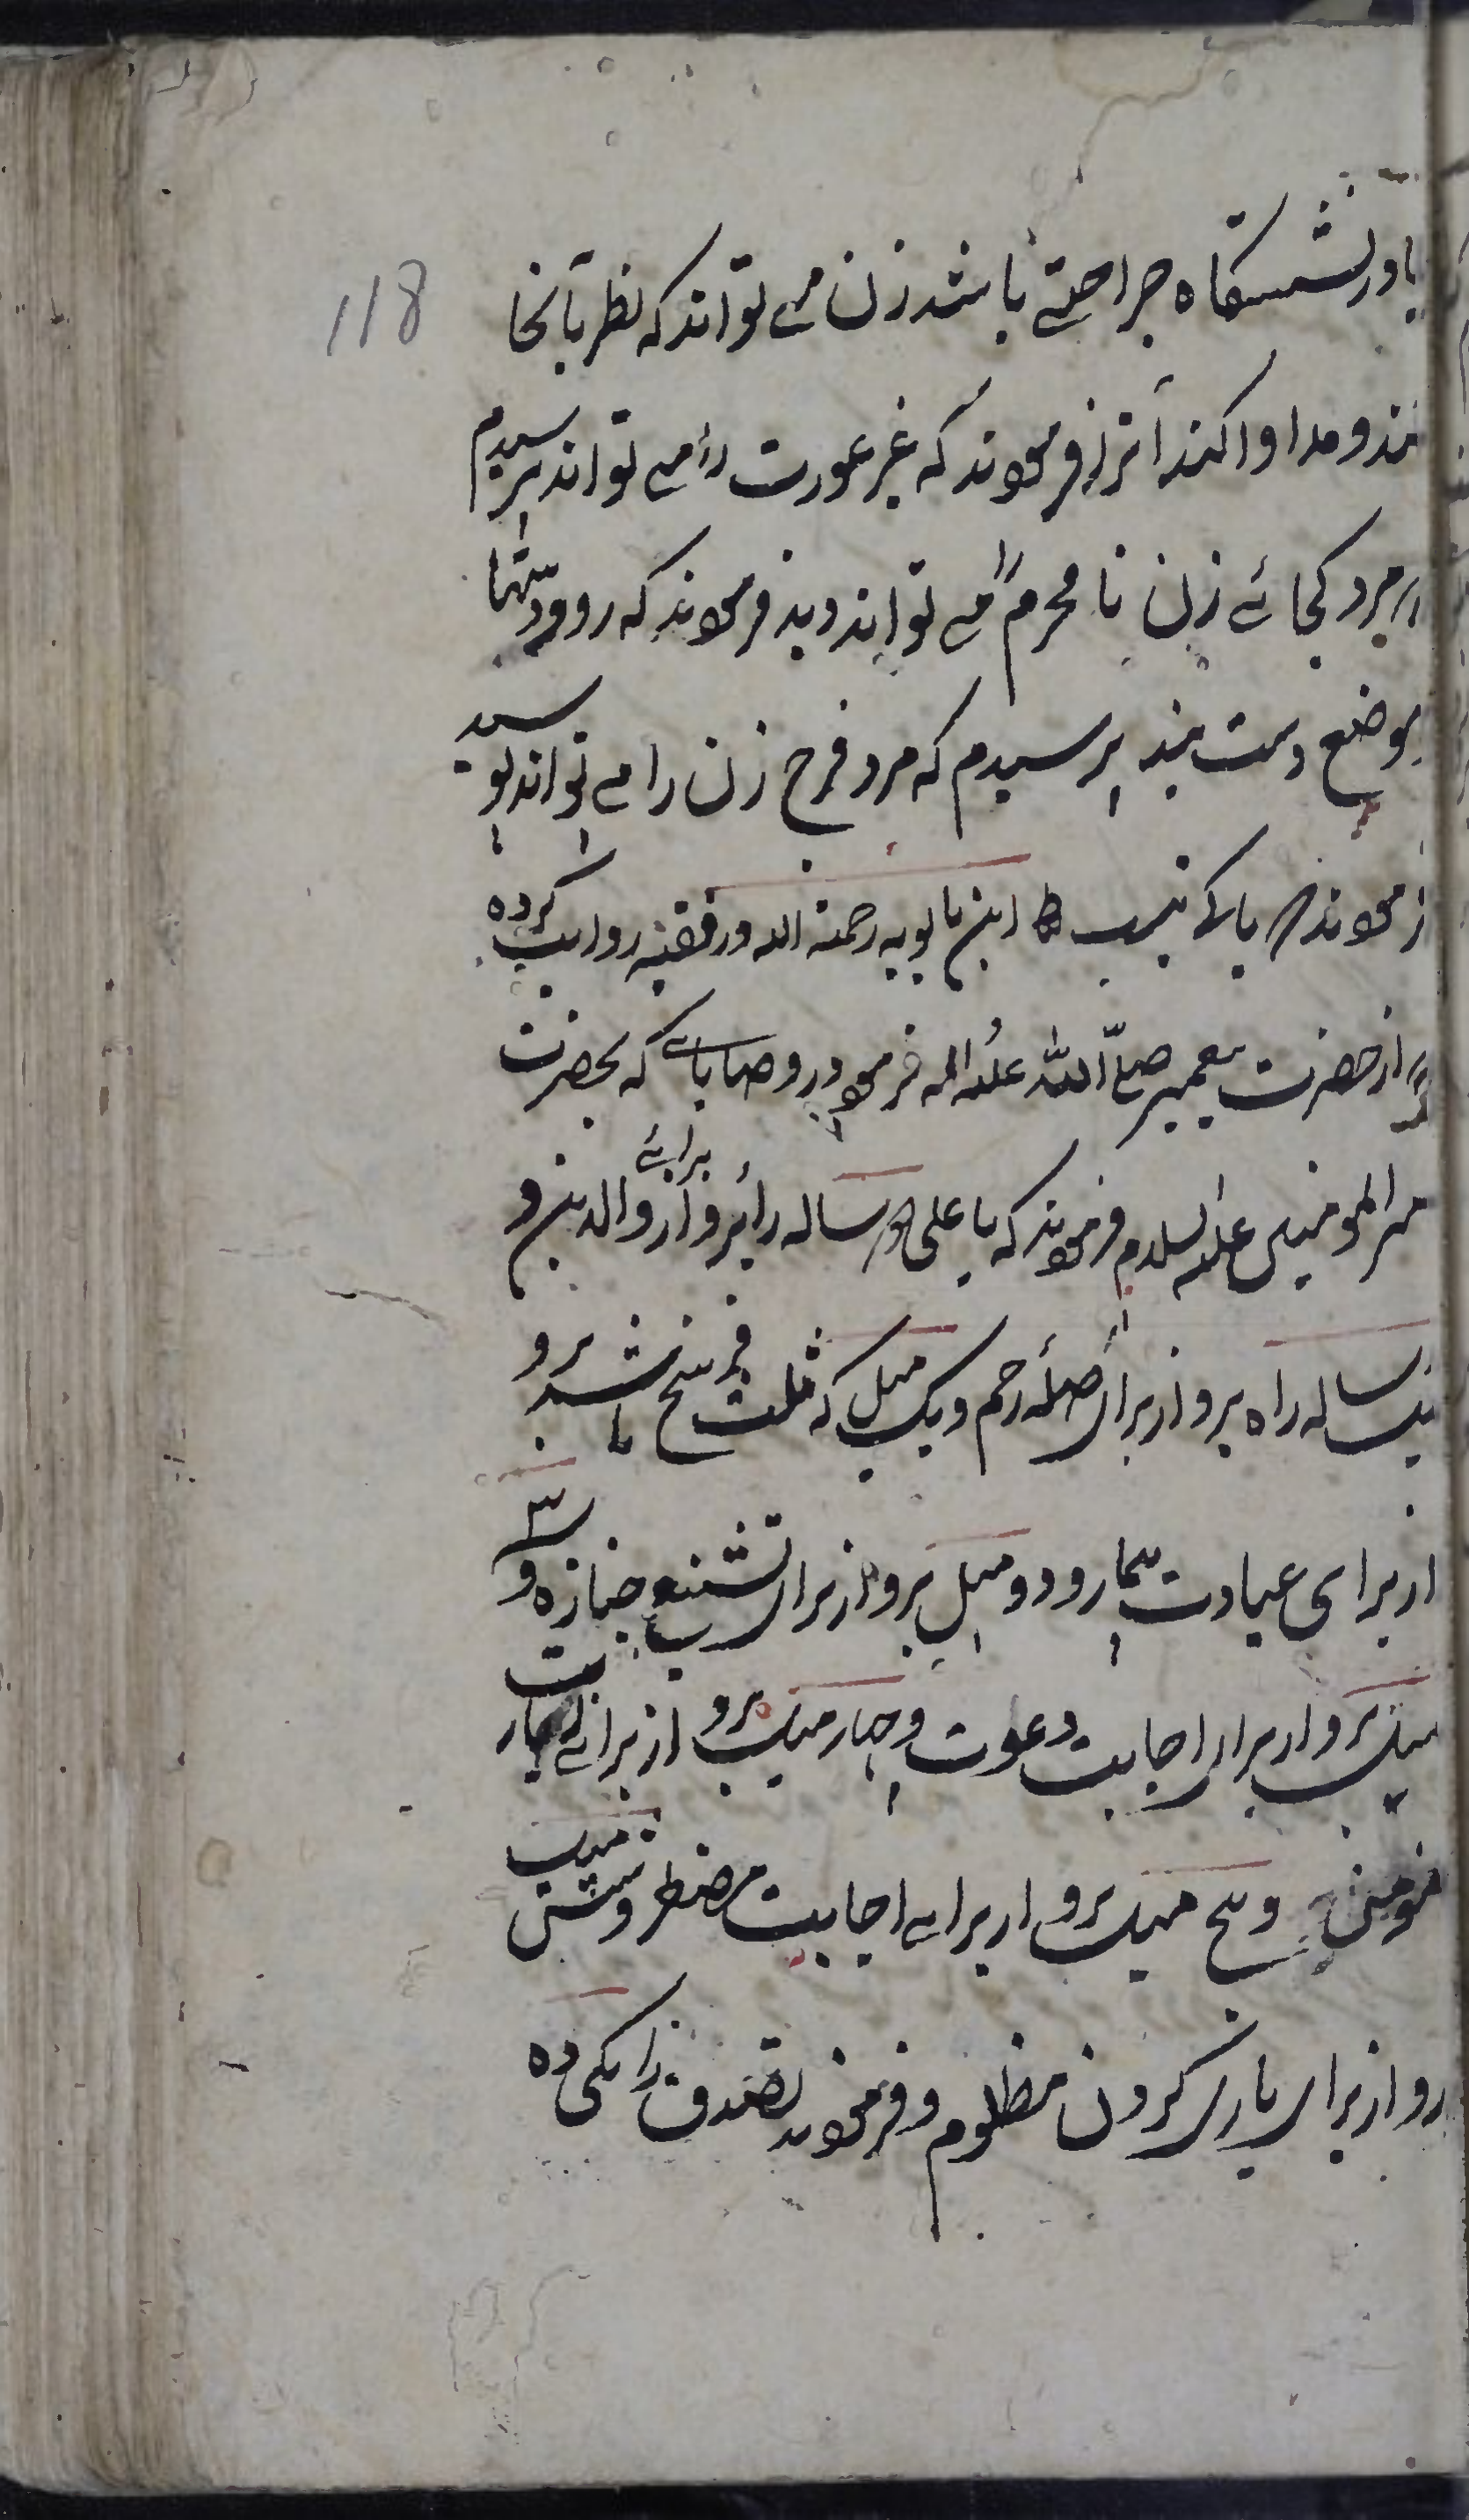 118
یا در نشستگاه جراحتے باشد زن مے تواند که نظر بآنجا
کند و مداوا کند آنرا فرمودند که غیر عورت را مے تواند پرسیدم
که مرد کجائے زن نا محرم را مے تواند دید فرمودند که رو و دستها
موضع دست بند پرسیدم که مرد فرج زن را مے تواند بوسید
فرمودند باکے نیست ابن بابویه رحمة الله در فقیه روایت کرده
که از حضرت پیغمبر صلّی الله علیه و اله فرمود در وصایائے که بحضرت
امیر المومنین علیه السلام فرمودند که یا علی دو ساله راه برو از برائے والدین و
یکساله راه برو از برای صلهٔ رحم و یک میل که ثلث فرسخ باشد برو
از برای عیادت بیمار و دو میل برو از برای تشییع جنازه و سه
میل برو از برای اجابت دعوت و چهار میل برو از برائے زیارت
مومن و پنج میل برو از برائے اجابت مضطر و شش میل
برو از برای یاری کردن مظلوم و فرمودند تصدق را یکی ده